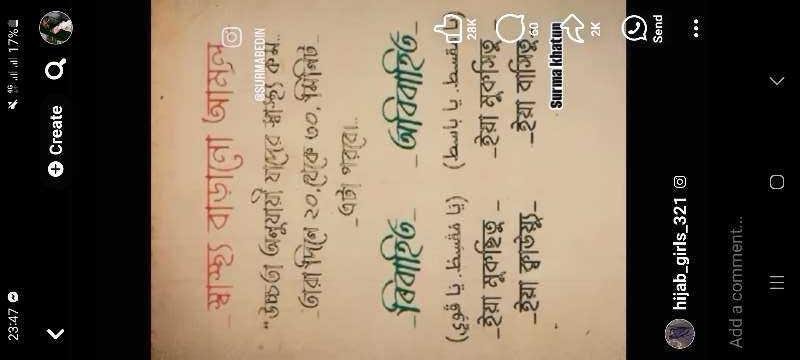 23:47
4G 17%
Create
-স্বাস্থ্য বাড়ানো আমল-
@SURMABEDIN
"উচ্চতা অনুযায়ী যাদের স্বাস্থ্য কম..
-তারা দিনে ২০, থেকে ৩০, মিনিট-
-এটা পরবে..
-বিবাহিত-
-ইয়া মুকছিতু-
-ইয়া ক্বাউয়্যু-
-অবিবাহিত-
-ইয়া মুবাসিতু
-ইয়া বাসিতু-
28K
60
2K
Send
Surma khatun
hijab_girls_321
Add a comment...